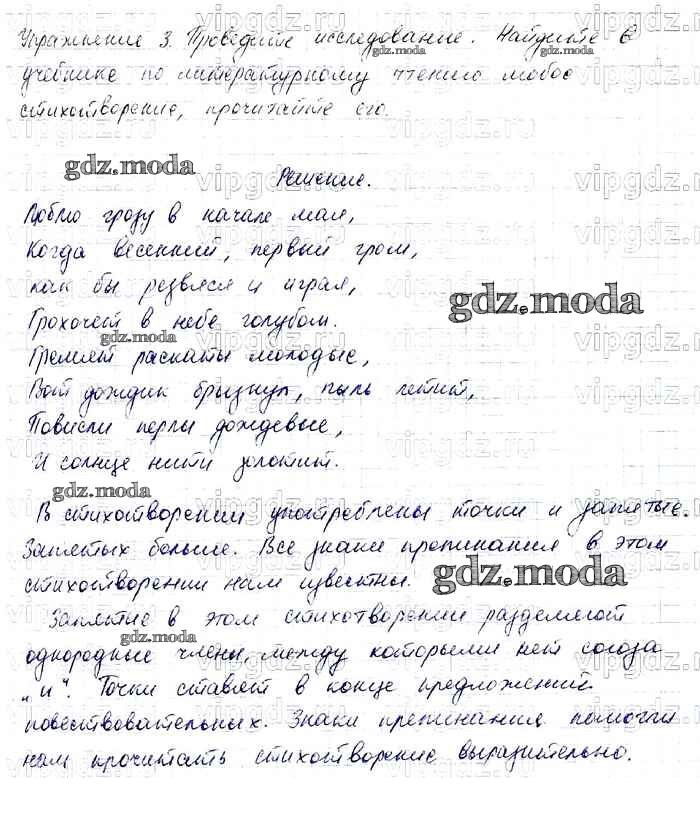 Упражнение 3. Проведите исследование. Найдите в
учебнике по литературному чтению любое
стихотворение, прочитайте его.
gdz.moda
Решение.
Люблю грозу в начале мая,
Когда весенний, первый гром,
как бы резвяся и играя,
Грохочет в небе голубом.
gdz.moda
Гремят раскаты молодые,
Вот дождик брызнул, пыль летит,
Повисли перлы дождевые,
И солнце нити золотит.
gdz.moda
В стихотворении употреблены точки и запятые.
Запятых больше. Все знаки препинания в этом
стихотворении нам известны.
gdz.moda
Запятые в этом стихотворении разделяют
gdz.moda
однородные члены, между которыми нет союза
"и". Точки ставят в конце предложений
повествовательных. Знаки препинания помогли
нам прочитать стихотворение выразительно.
vipgdz.ru